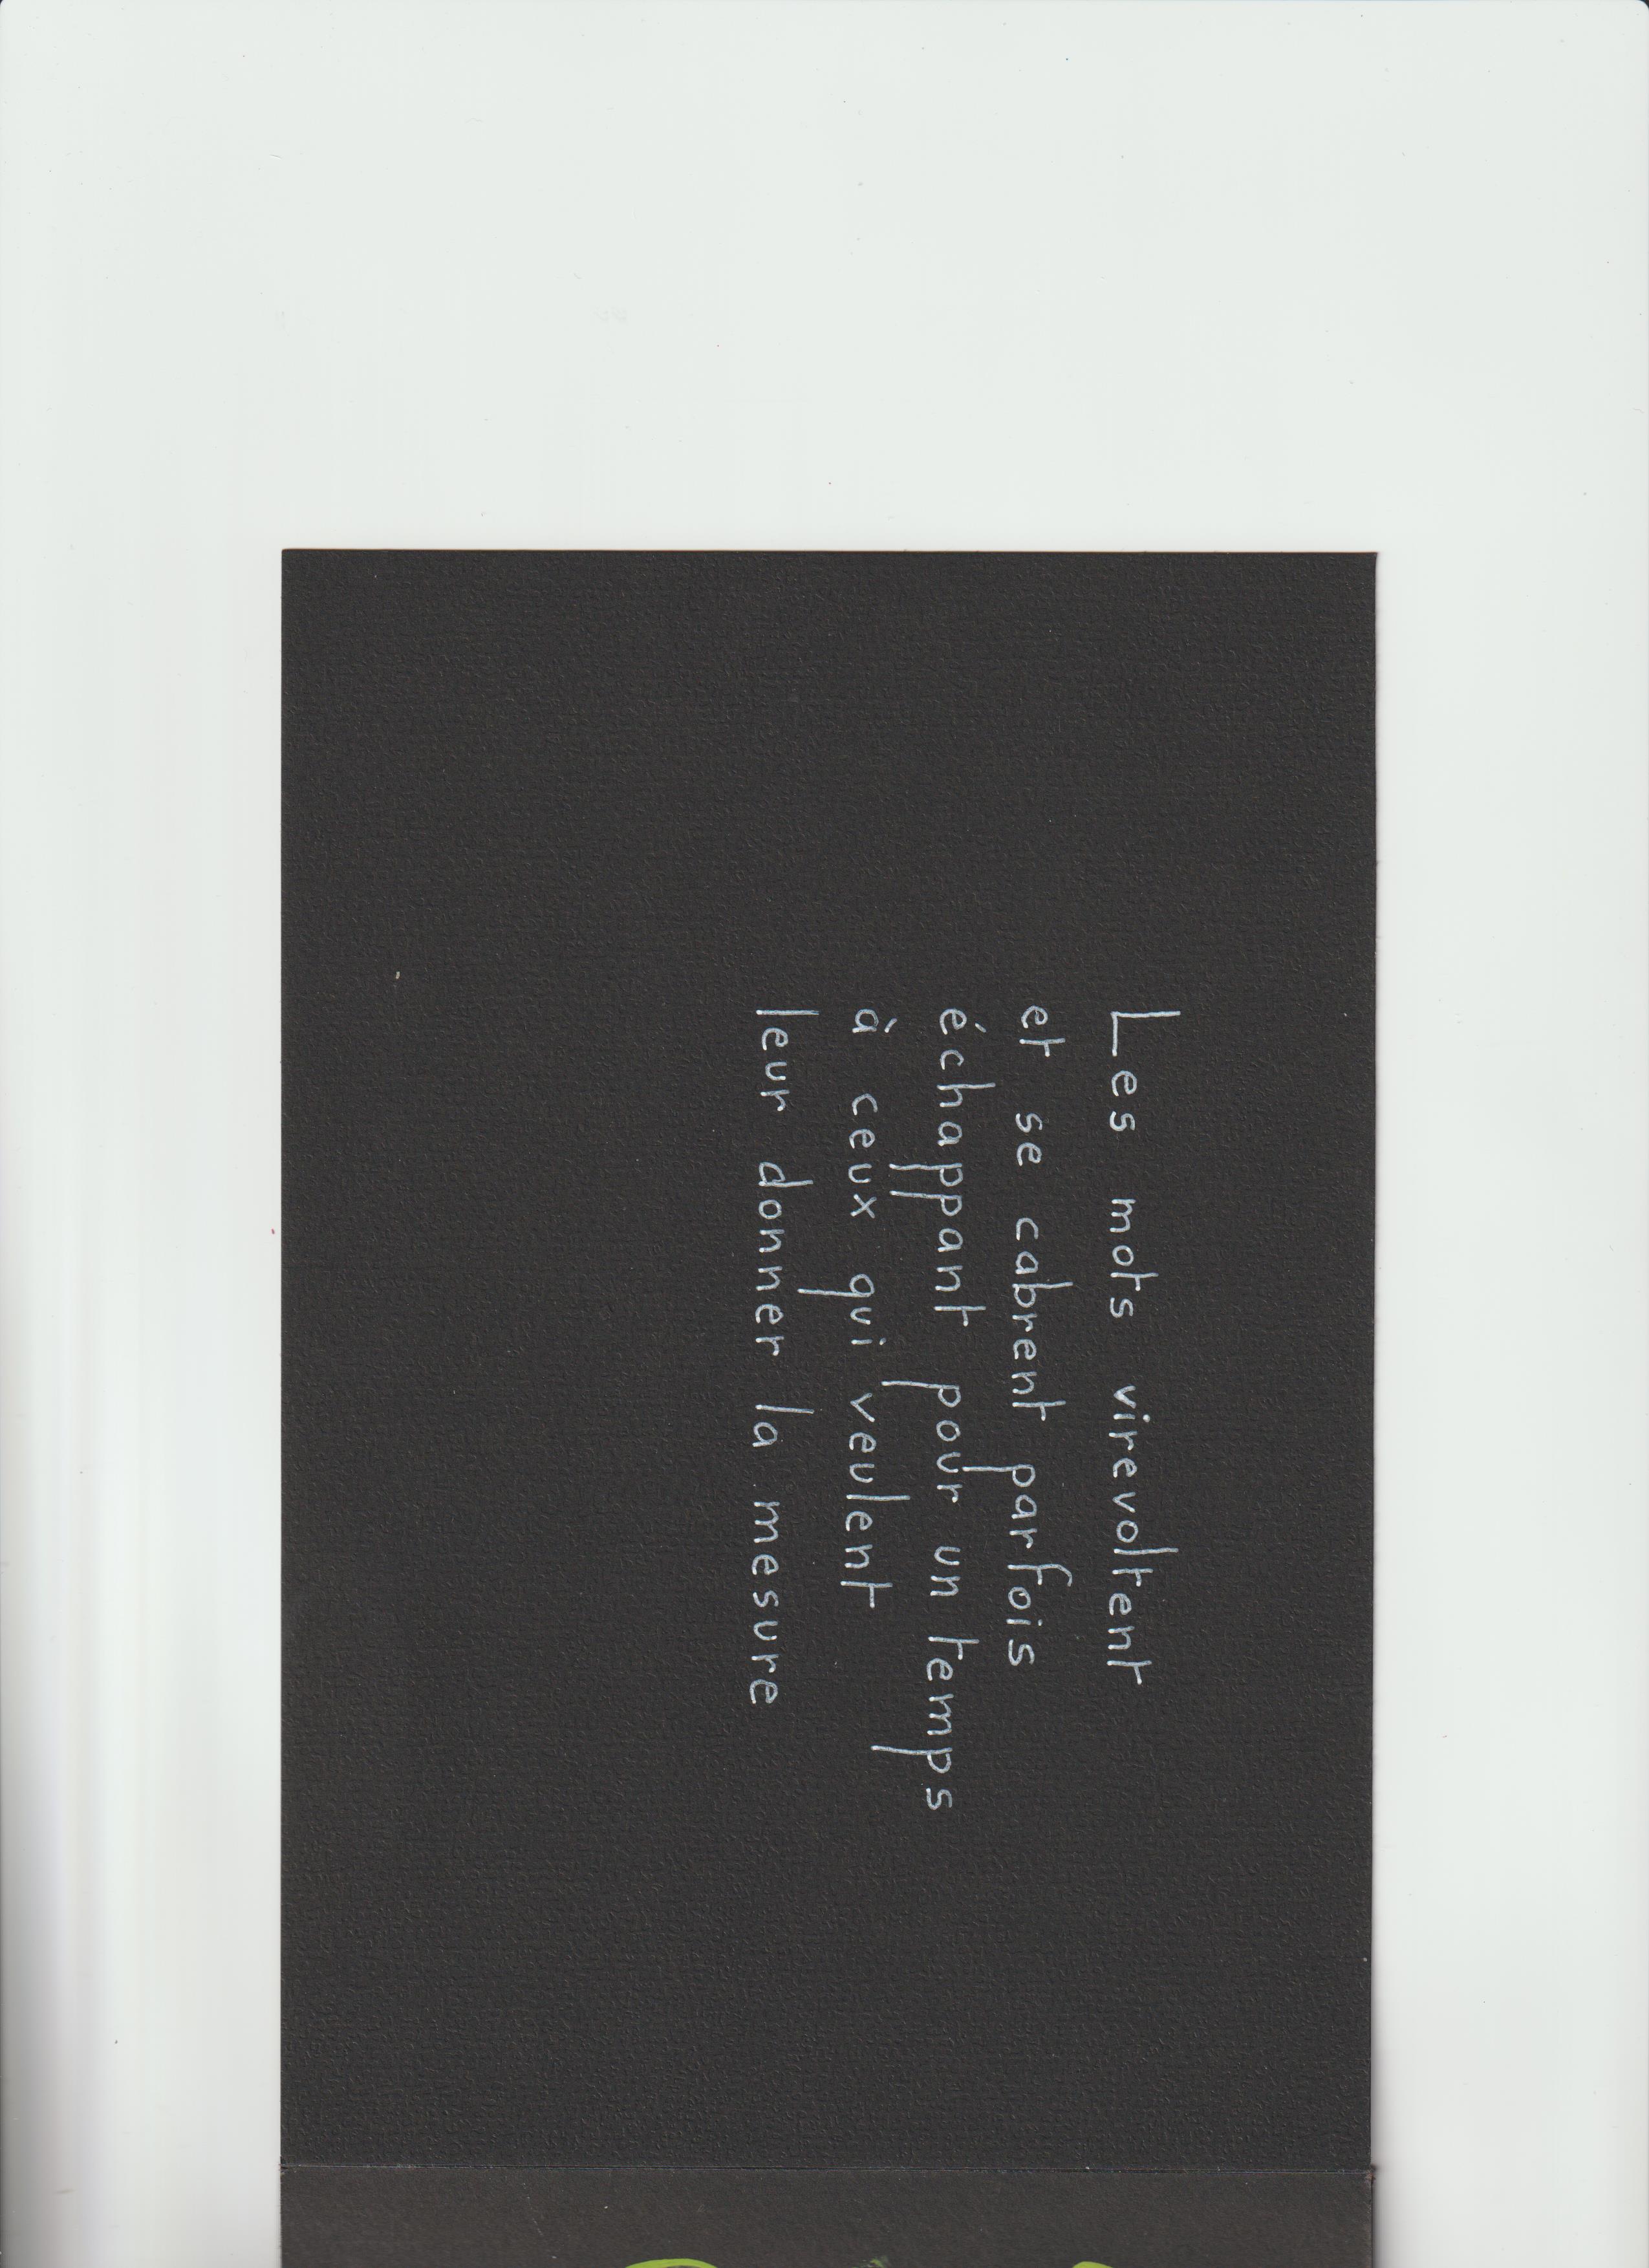 Les mots virevoltent
et se cabrent parfois
échappant pour un temps
à ceux qui veulent
leur donner la mesure